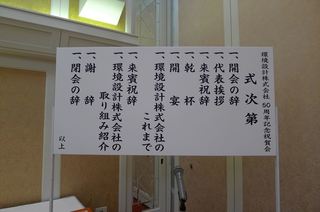 環境設計株式会社 50周年記念祝賀会
式次第
一、開会の辞
一、代表挨拶
一、来賓祝辞
一、乾杯
一、開宴
一、環境設計株式会社の
これまで
一、来賓祝辞
一、環境設計株式会社の
取り組み紹介
一、謝辞
一、閉会の辞
以上